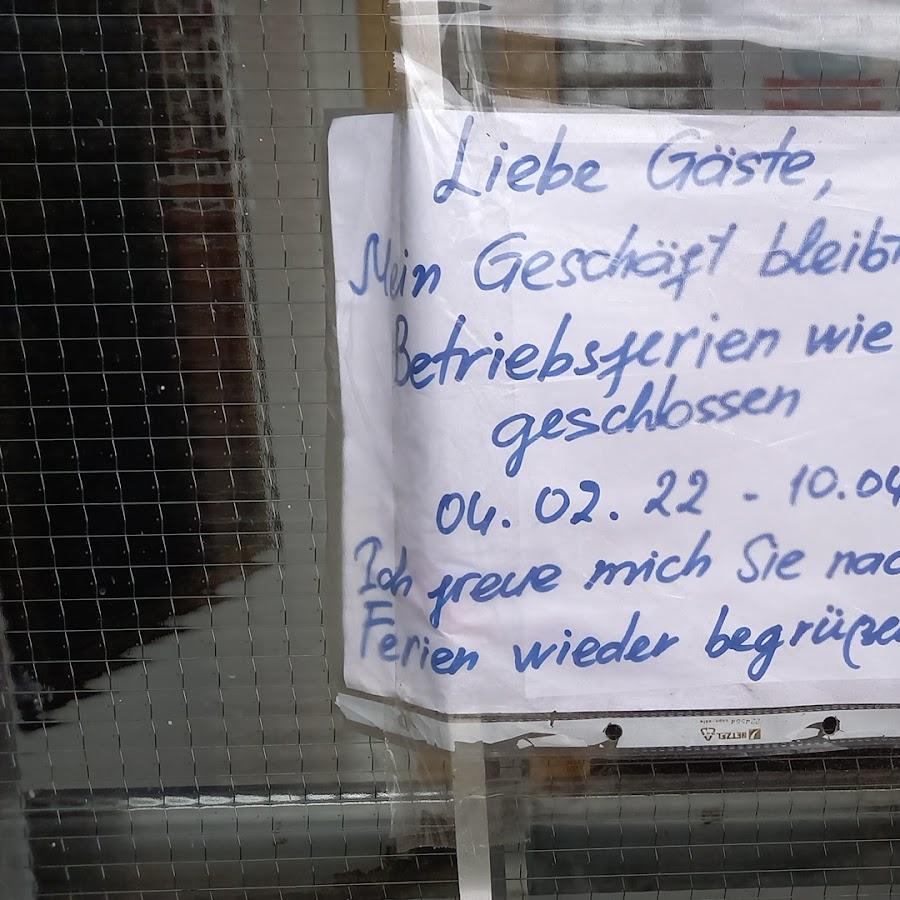 Liebe Gäste,
Mein Geschäft bleibt
Betriebsferien wie
geschlossen
04. 02. 22 - 10.04
Ich freue mich Sie nac
Ferien wieder begrüße
HETZEL